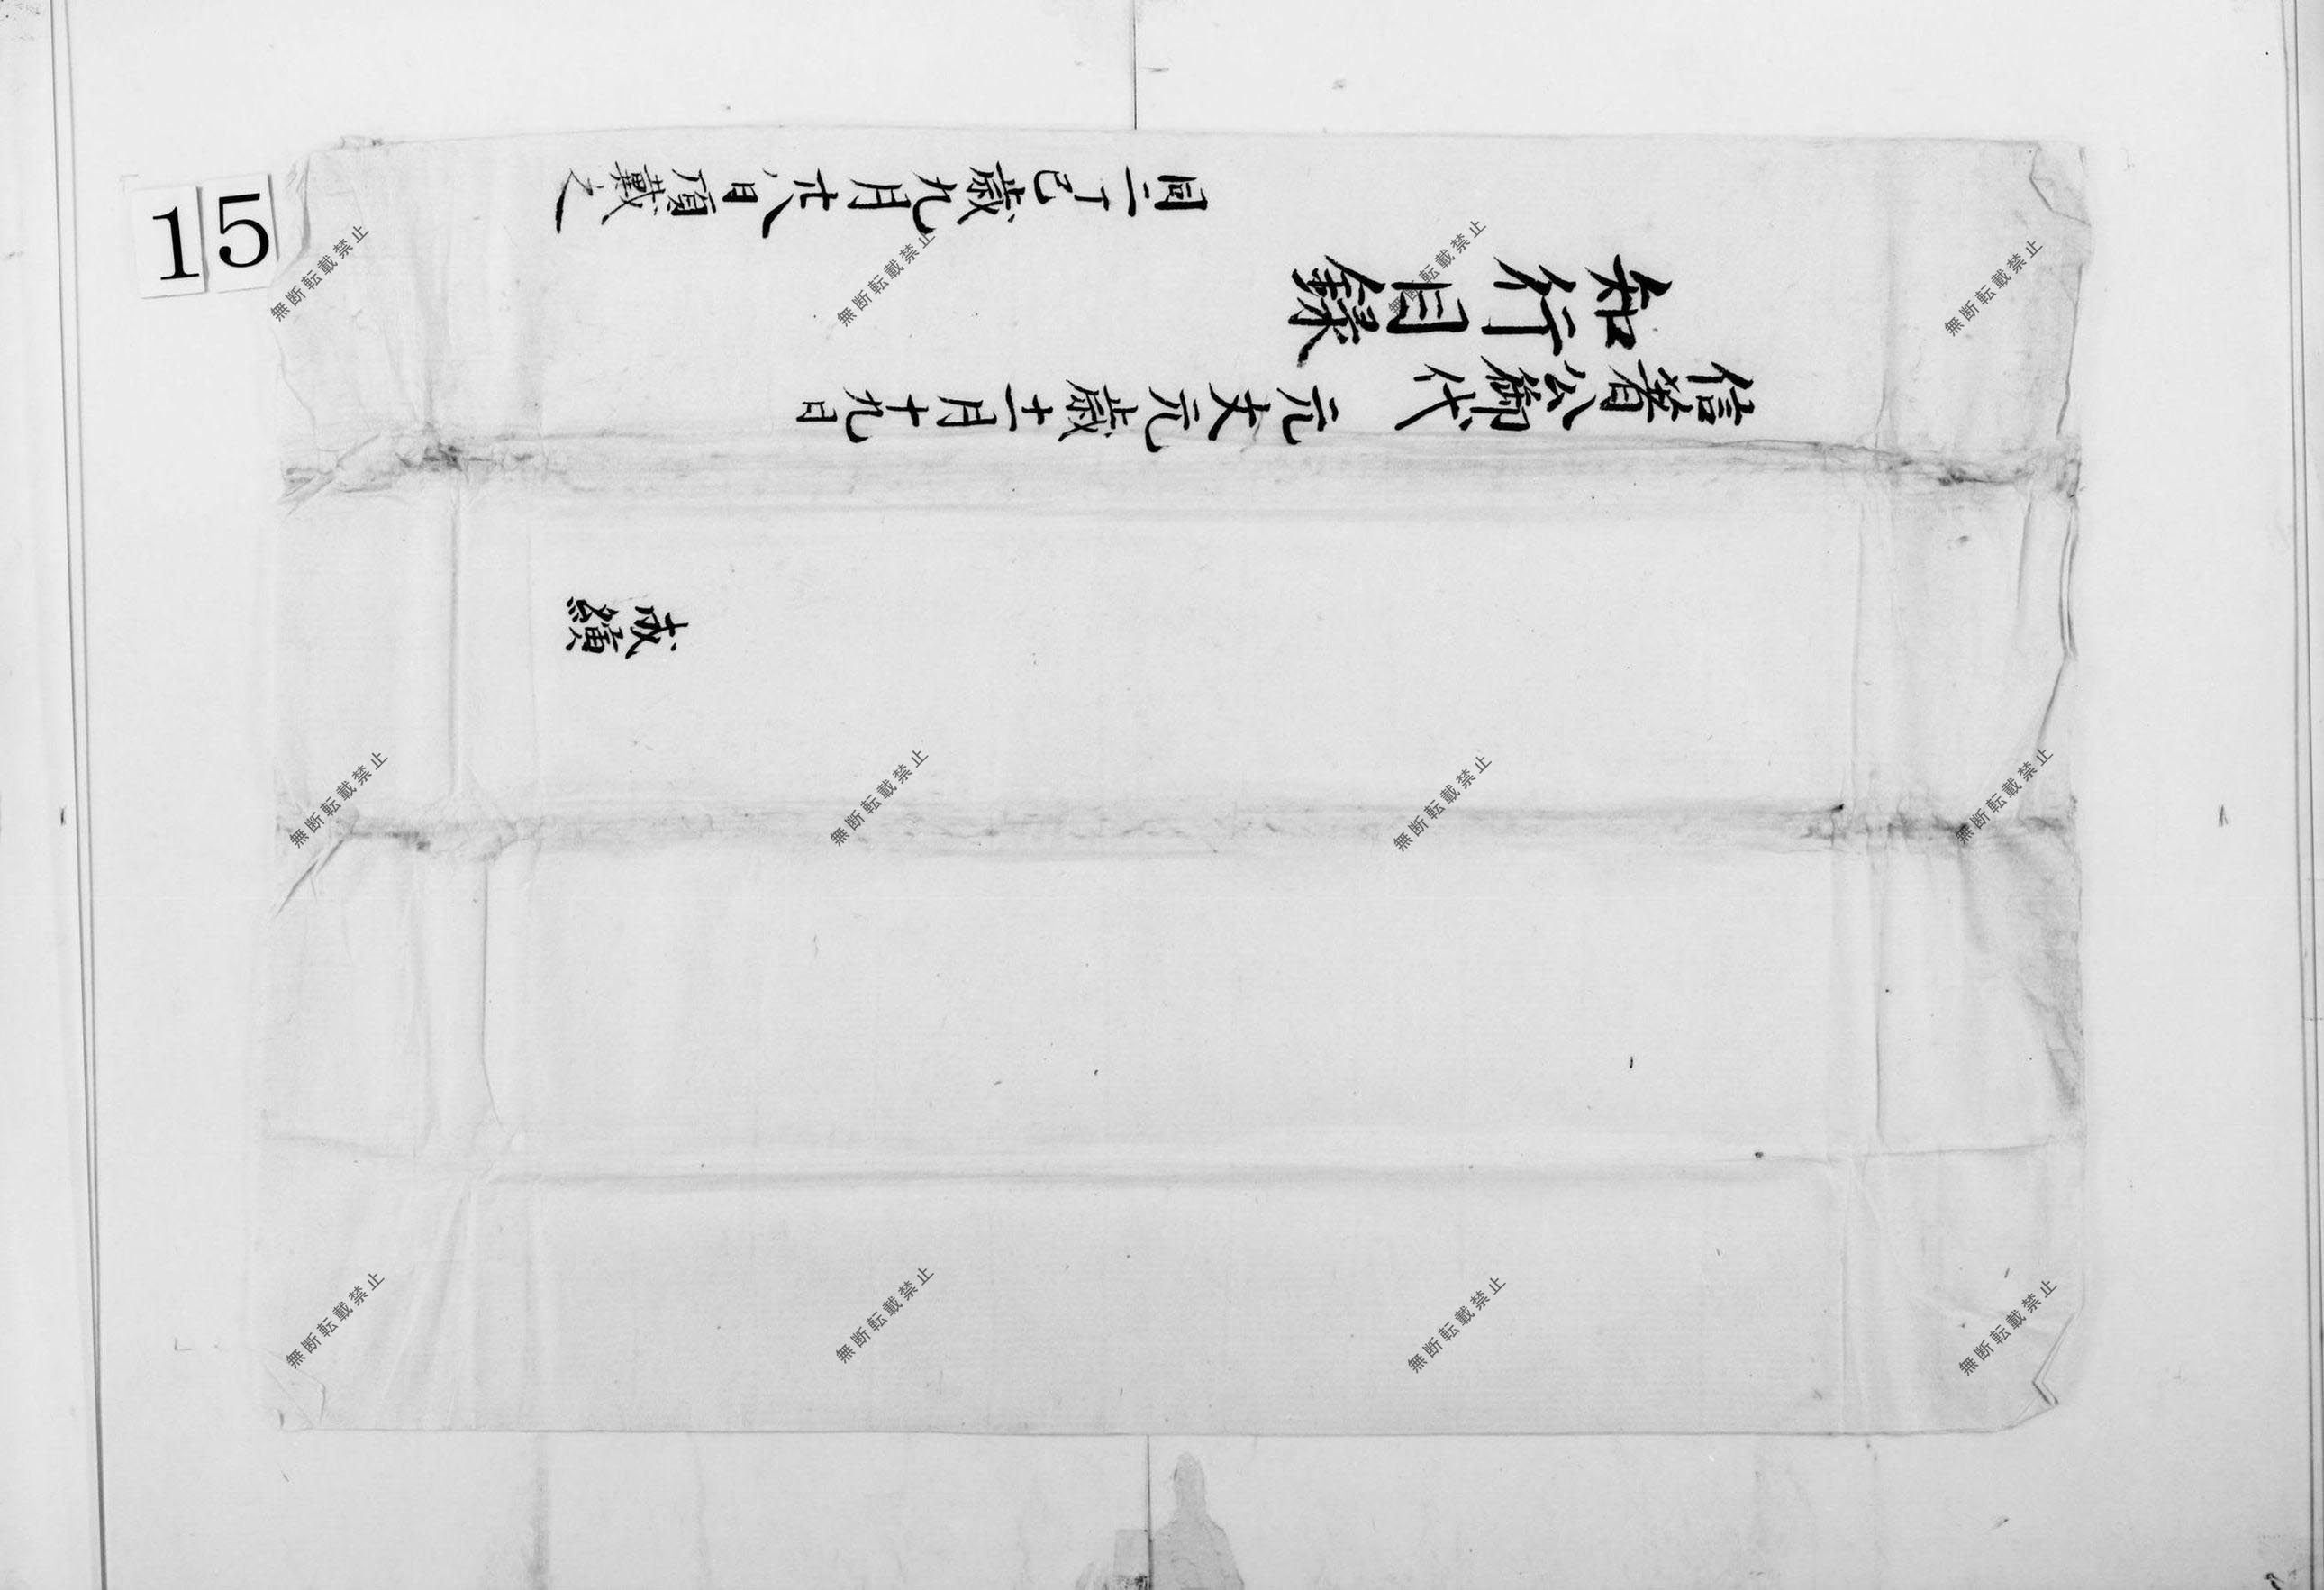 信著公御代 元文元歳十一月十九日
知行目録
同二丁巳歳九月廿八日頂戴之
15
無断転載禁止
無断転載禁止
無断転載禁止
無断転載禁止
無断転載禁止
無断転載禁止
無断転載禁止
無断転載禁止
無断転載禁止
無断転載禁止
無断転載禁止
無断転載禁止